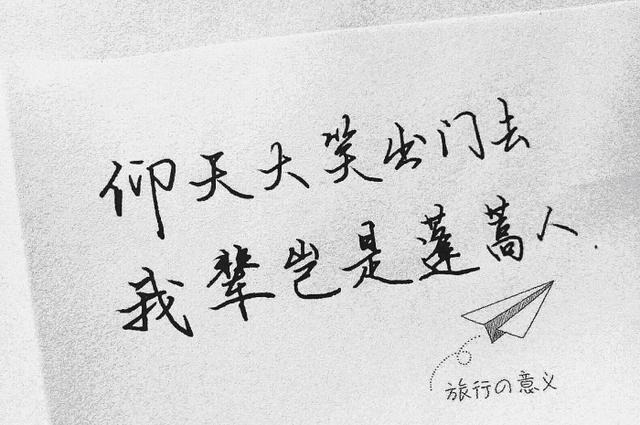 仰天大笑出门去
我辈岂是蓬蒿人.
旅行の意义